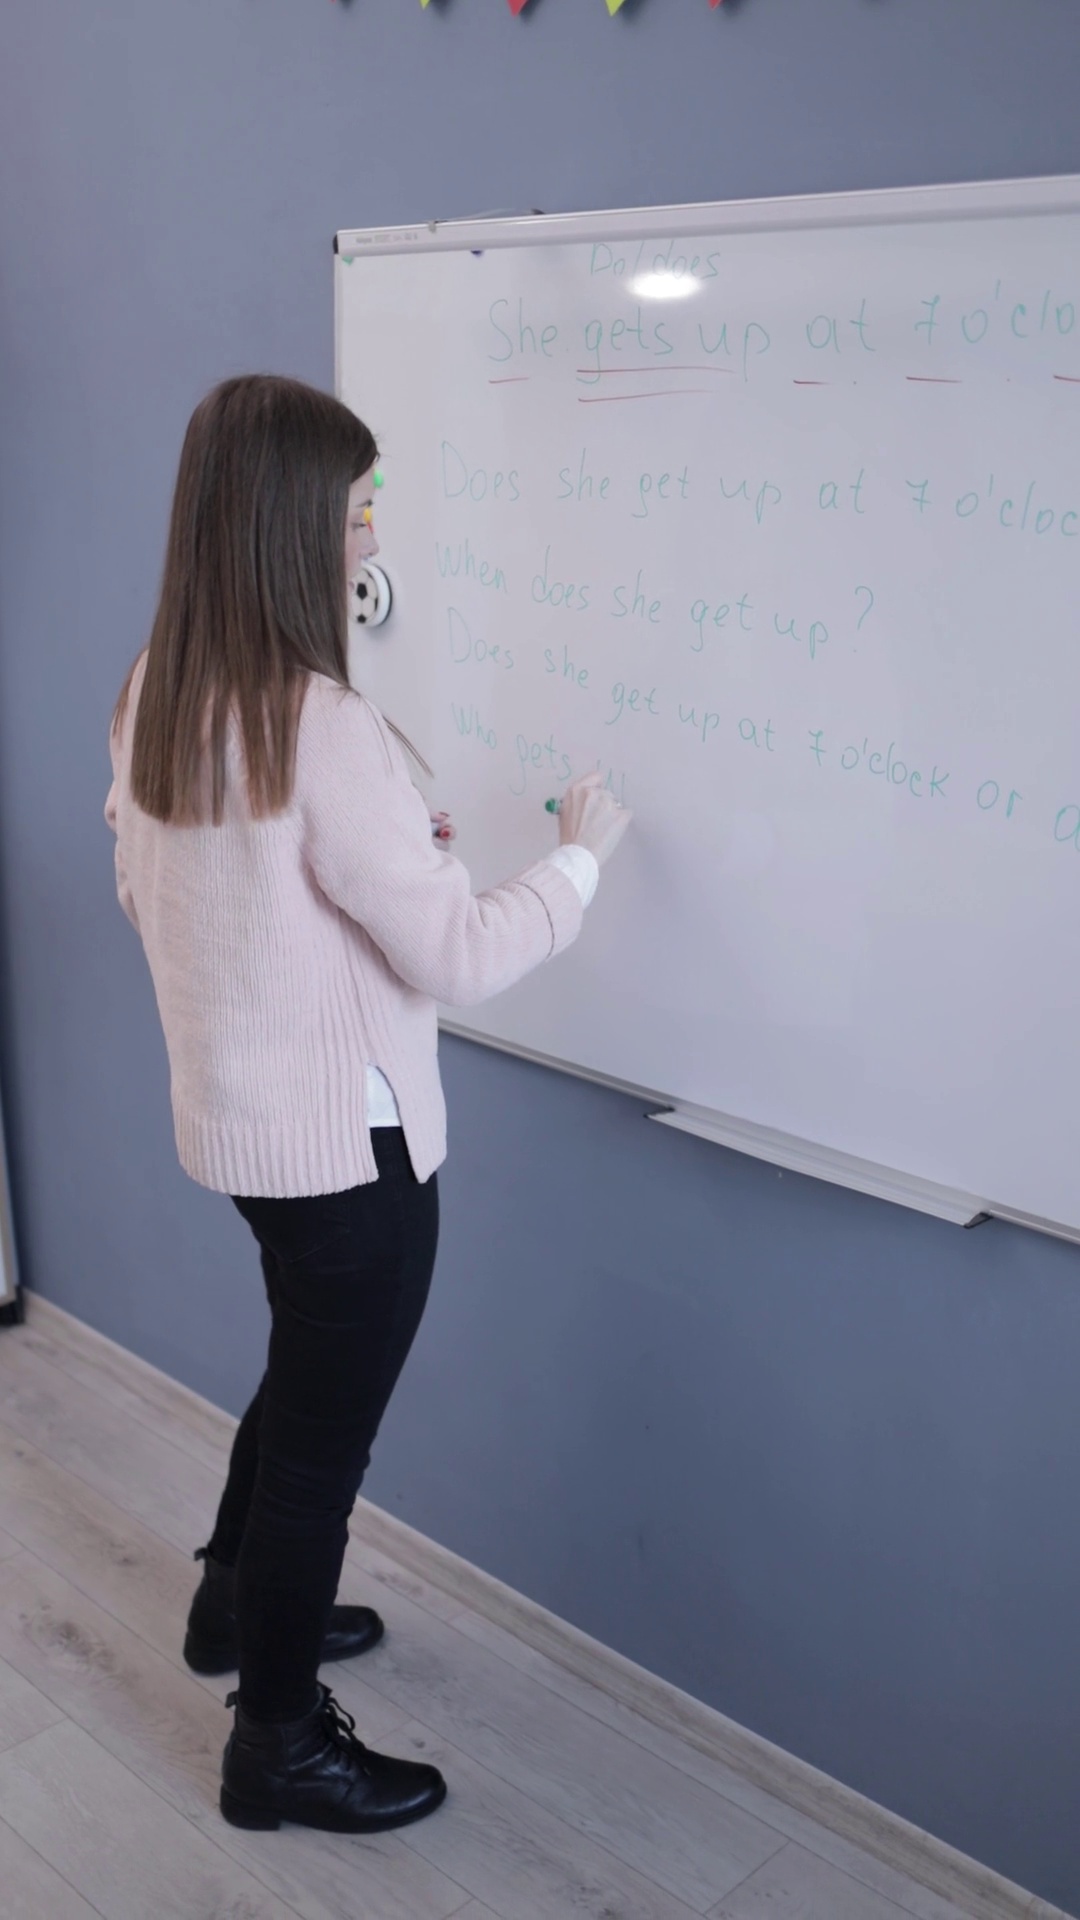 Do/does
She gets up at 7 o'clo
Does she get up at 7 o'cloc
When does she get up ?
Does she get up at 7 o'clock or a
Who gets